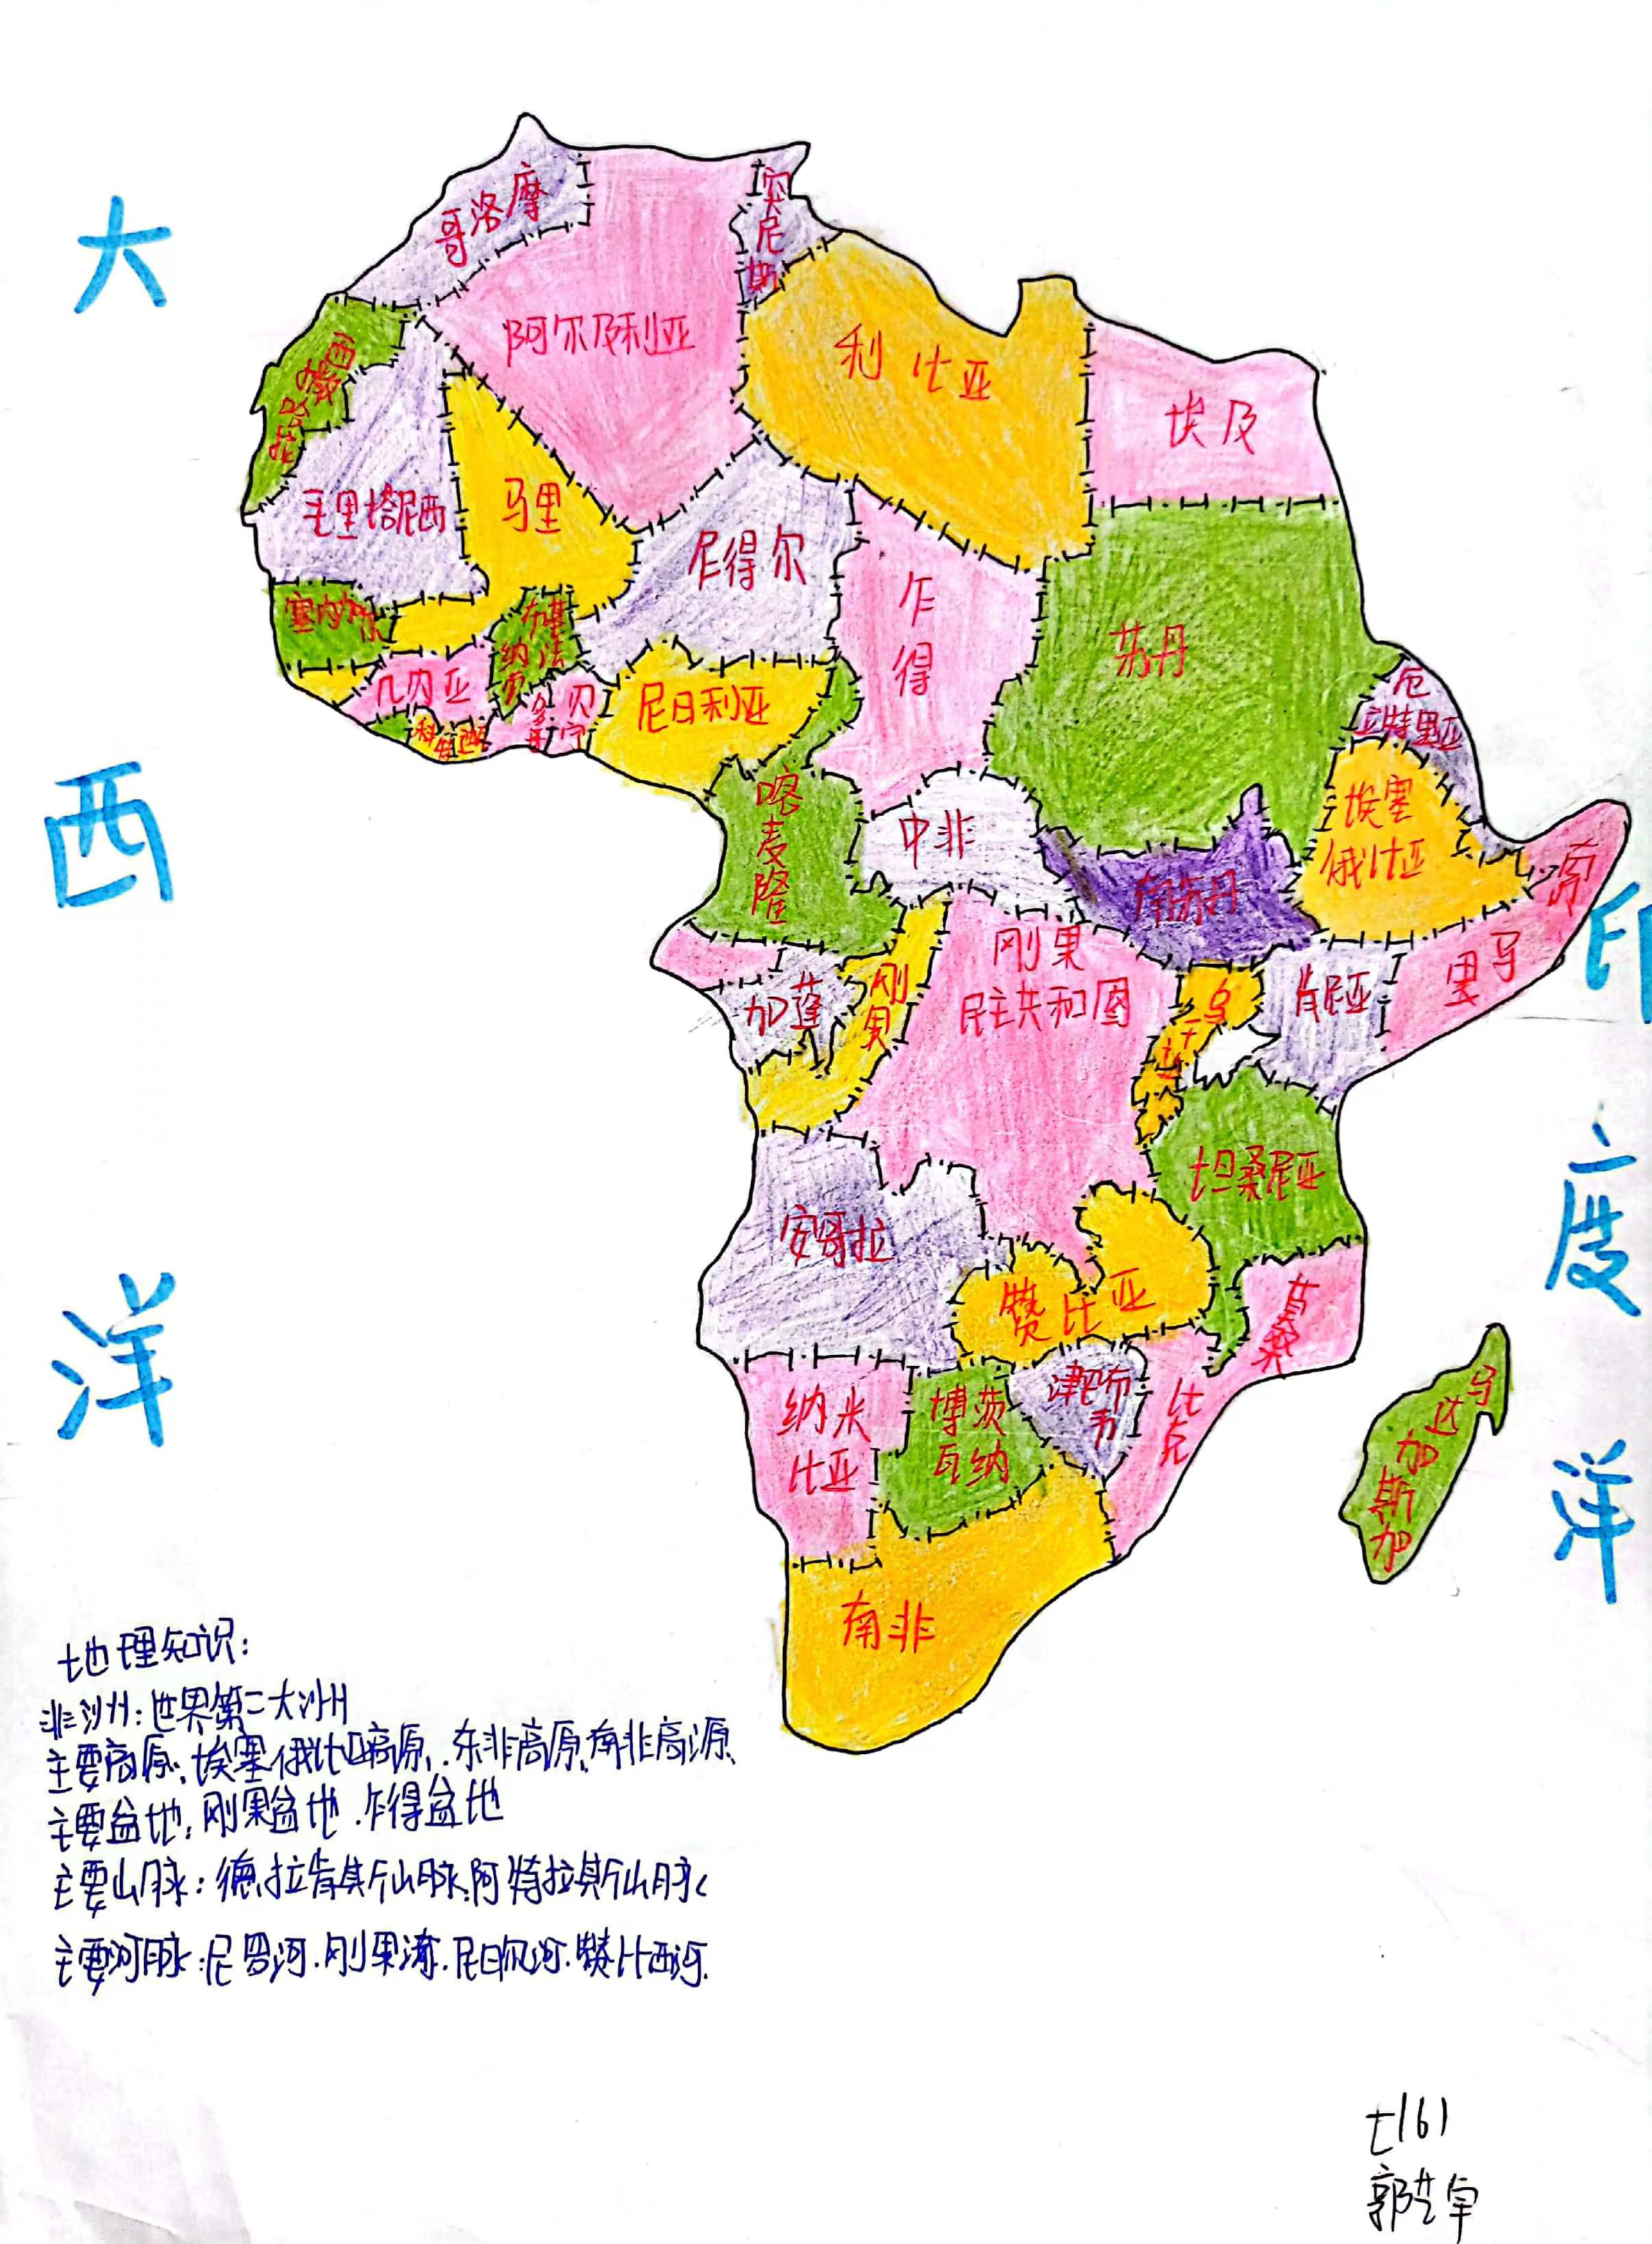 大
西
洋
印
度
洋
摩洛哥
阿尔及利亚
突尼斯
利比亚
埃及
西撒
毛里塔尼西
马里
乍得尔
乍得
苏丹
厄立特里亚
塞内加尔
布基纳法索
几内亚
科特迪瓦
多哥
贝宁
尼日利亚
喀麦隆
中非
南苏丹
埃塞俄比亚
索马里
加蓬
刚果
刚果民主共和国
乌干达
肯尼亚
坦桑尼亚
安哥拉
赞比亚
莫桑比克
纳米比亚
博茨瓦纳
津巴布韦
马达加斯加
南非
地理知识:
非洲:世界第二大洲
主要高原:埃塞俄比亚高原、东非高原、南非高源、
主要盆地:刚果盆地.乍得盆地
主要山脉:德拉肯其斤山脉.阿特拉其斤山脉
主要河脉:尼罗河.刚果河.尼日尔河.赞比西河.
七(6)